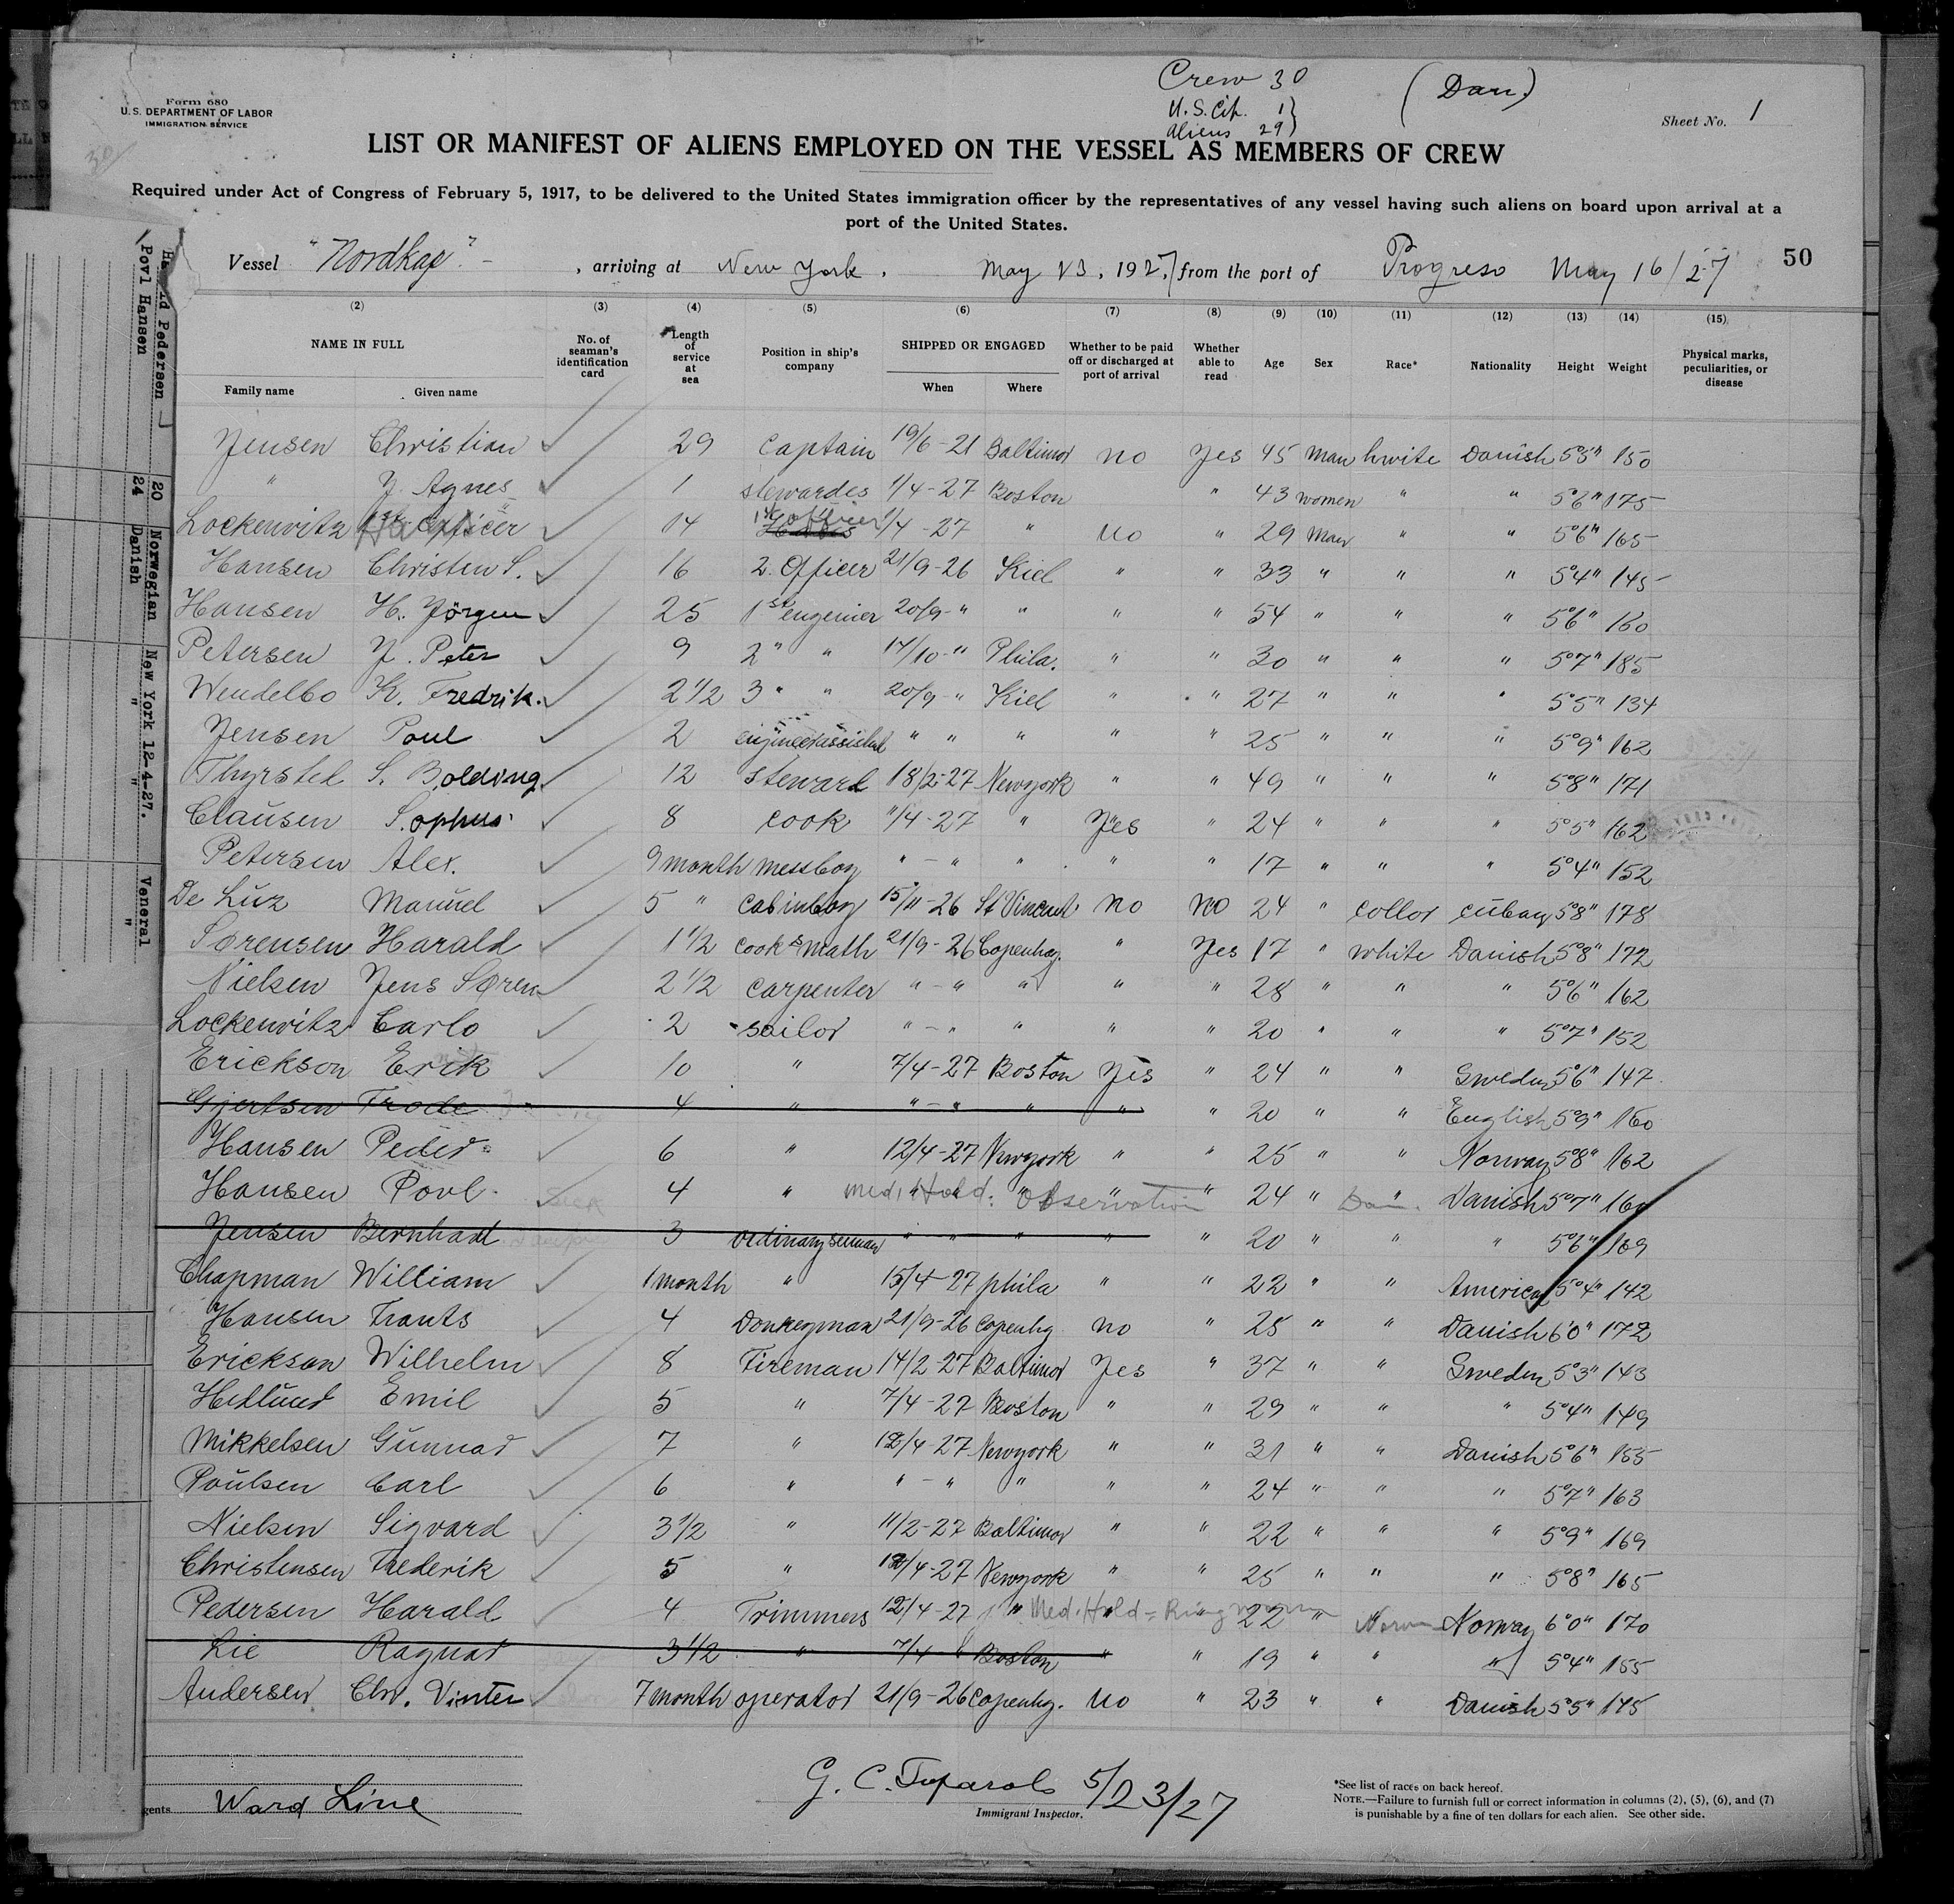 Form 680
U.S. DEPARTMENT OF LABOR
IMMIGRATION SERVICE
Crew 30
U.S. Cit. 1
Aliens 29
(Dan.)
Sheet No. 1
30
LIST OR MANIFEST OF ALIENS EMPLOYED ON THE VESSEL AS MEMBERS OF CREW
Required under Act of Congress of February 5, 1917, to be delivered to the United States immigration officer by the representatives of any vessel having such aliens on board upon arrival at a
port of the United States.
Vessel "Nordkap" - , arriving at New York, May 23, 1927, from the port of Progreso May 16/27 50
(2) (3) (4) (5) (6) (7) (8) (9) (10) (11) (12) (13) (14) (15)
NAME IN FULL
Family name Given name
No. of seaman's identification card
Length of service at sea
Position in ship's company
SHIPPED OR ENGAGED
When Where
Whether to be paid off or discharged at port of arrival
Whether able to read
Age Sex Race* Nationality Height Weight
Physical marks, peculiarities, or disease
Jensen Christian 29 Captain 19/6-21 Baltimor no Yes 45 Man hwite Danish 5°5" 150
" J. Agnes 1 stewardes 1/4-27 Boston " 43 women " " 5°6" 175
Lockenwitz 1st Officer 14 1st officer 1/4-27 " No " 29 Man " " 5°6" 165
Hansen Christen S. 16 2. Officer 21/9-26 Kiel " " 33 " " " 5°4" 145
Hansen H. Jörgen 25 1st engenier 20/9-" " " " 54 " " " 5°6" 160
Petersen J. Peter 9 2 " " 14/10-" Phila. " " 30 " " " 5°7" 185
Wendelbo K. Fredrik. 2 1/2 3 " " 20/9-" Kiel " " 27 " " " 5°5" 134
Jensen Poul 2 engineerassistent " " " " " 25 " " " 5°9" 162
Thyrsted S. Bolding 12 Steward 18/2-27 Newyork " " 49 " " " 5°8" 171
Clausen Sophus 8 cook "/4-27 " Yes " 24 " " " 5°5" 162
Petersen Alex. 9 month messboy " - " " " " 17 " " " 5°4" 152
De Luz Manuel 5 " cabinboy 15/11-26 St Vincent no no 24 " collor cuban 5°8" 178
Sørensen Harald 1 1/2 cooks math 21/9-26 Copenhag. " Yes 17 " white Danish 5°8" 172
Nielsen Jens Søren 2 1/2 carpenter " - " " " " 28 " " " 5°6" 162
Lockenwitz Carlo 2 sailor " - " " " " 20 " " " 5°7" 152
Erickson Erik 10 " 7/4-27 Boston Yes " 24 " " Sweden 5°6" 147
Gjertsen Frode 4 " " - " " " " 20 " " English 5°9" 160
Hansen Peder 6 " 12/4-27 Newyork " " 25 " " Norway 5°8" 162
Hansen Povl. 4 " Med. Hold: Observation " 24 " Dan. Danish 5°7" 160
Jensen Bernhadt 3 ordinary seeman " " " " " 20 " " " 5°6" 169
Chapman William 1 month " 15/4-27 phila " " 22 " " American 5°4" 142
Hansen Frants 4 Donkeyman 21/9-26 Copenhg no " 28 " " Danish 6°0" 172
Erickson Wilhelm 8 Fireman 14/2-27 Baltimor Yes " 37 " " Sweden 5°3" 143
Hedlund Emil 5 " 7/4-27 Boston " " 29 " " " 5°4" 149
Mikkelsen Gunnar 7 " 12/4-27 Newyork " " 31 " " Danish 5°6" 155
Poulsen Carl 6 " " - " " " " 24 " " " 5°7" 163
Nielsen Sigvard 3 1/2 " 11/2-27 Baltimor " " 22 " " " 5°9" 169
Christensen Frederik 5 " 12/4-27 Newyork " " 25 " " " 5°8" 165
Pedersen Harald 4 Trimmers 12/4-27 " Med. Hold = Ringworm 22 " Norw Norway 6°0" 170
Lie Ragnar 3 1/2 " 7/4 " Boston " " 19 " " " 5°4" 155
Andersen Chr. Vinter 7 month operator 21/9-26 Copenhg. No " 23 " " Danish 5°5" 145
gents Ward Line
5/23/27
Immigrant Inspector.
*See list of races on back hereof.
NOTE.—Failure to furnish full or correct information in columns (2), (5), (6), and (7)
is punishable by a fine of ten dollars for each alien. See other side.
Pedersen 20 Norwegian New York 12-4-27. Veneral
Povl Hansen 24 Danish " " "